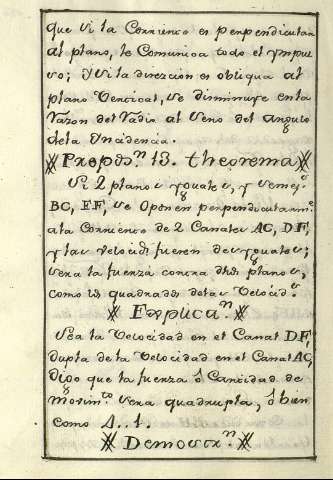 que si la Corriente es perpendicular
al plano, le Comunica todo el ympul
so; y si la direccion es obliqua al
plano Vertical, se disminuye en la
razon del Radio al Seno del angulo
de la Yncidencia.
Propos.n 13. theorema
Si 2 planos yguales, y semej.s
BC, EF, se Oponen perpendicularm.e
a la Corriente de 2 Canales AC, DF,
y las velocid.s fueren desyguales;
sera la fuerza contra dhos planos,
como los quadrados de las Velocid.s
Explica.n
Sea la Velocidad en el Canal DF,
dupla de la Velocidad en el Canal AC,
Digo que la fuerza ó Cantidad de
movim.to sera quadrupla, ó bien
como 4..1.
Demostr.n